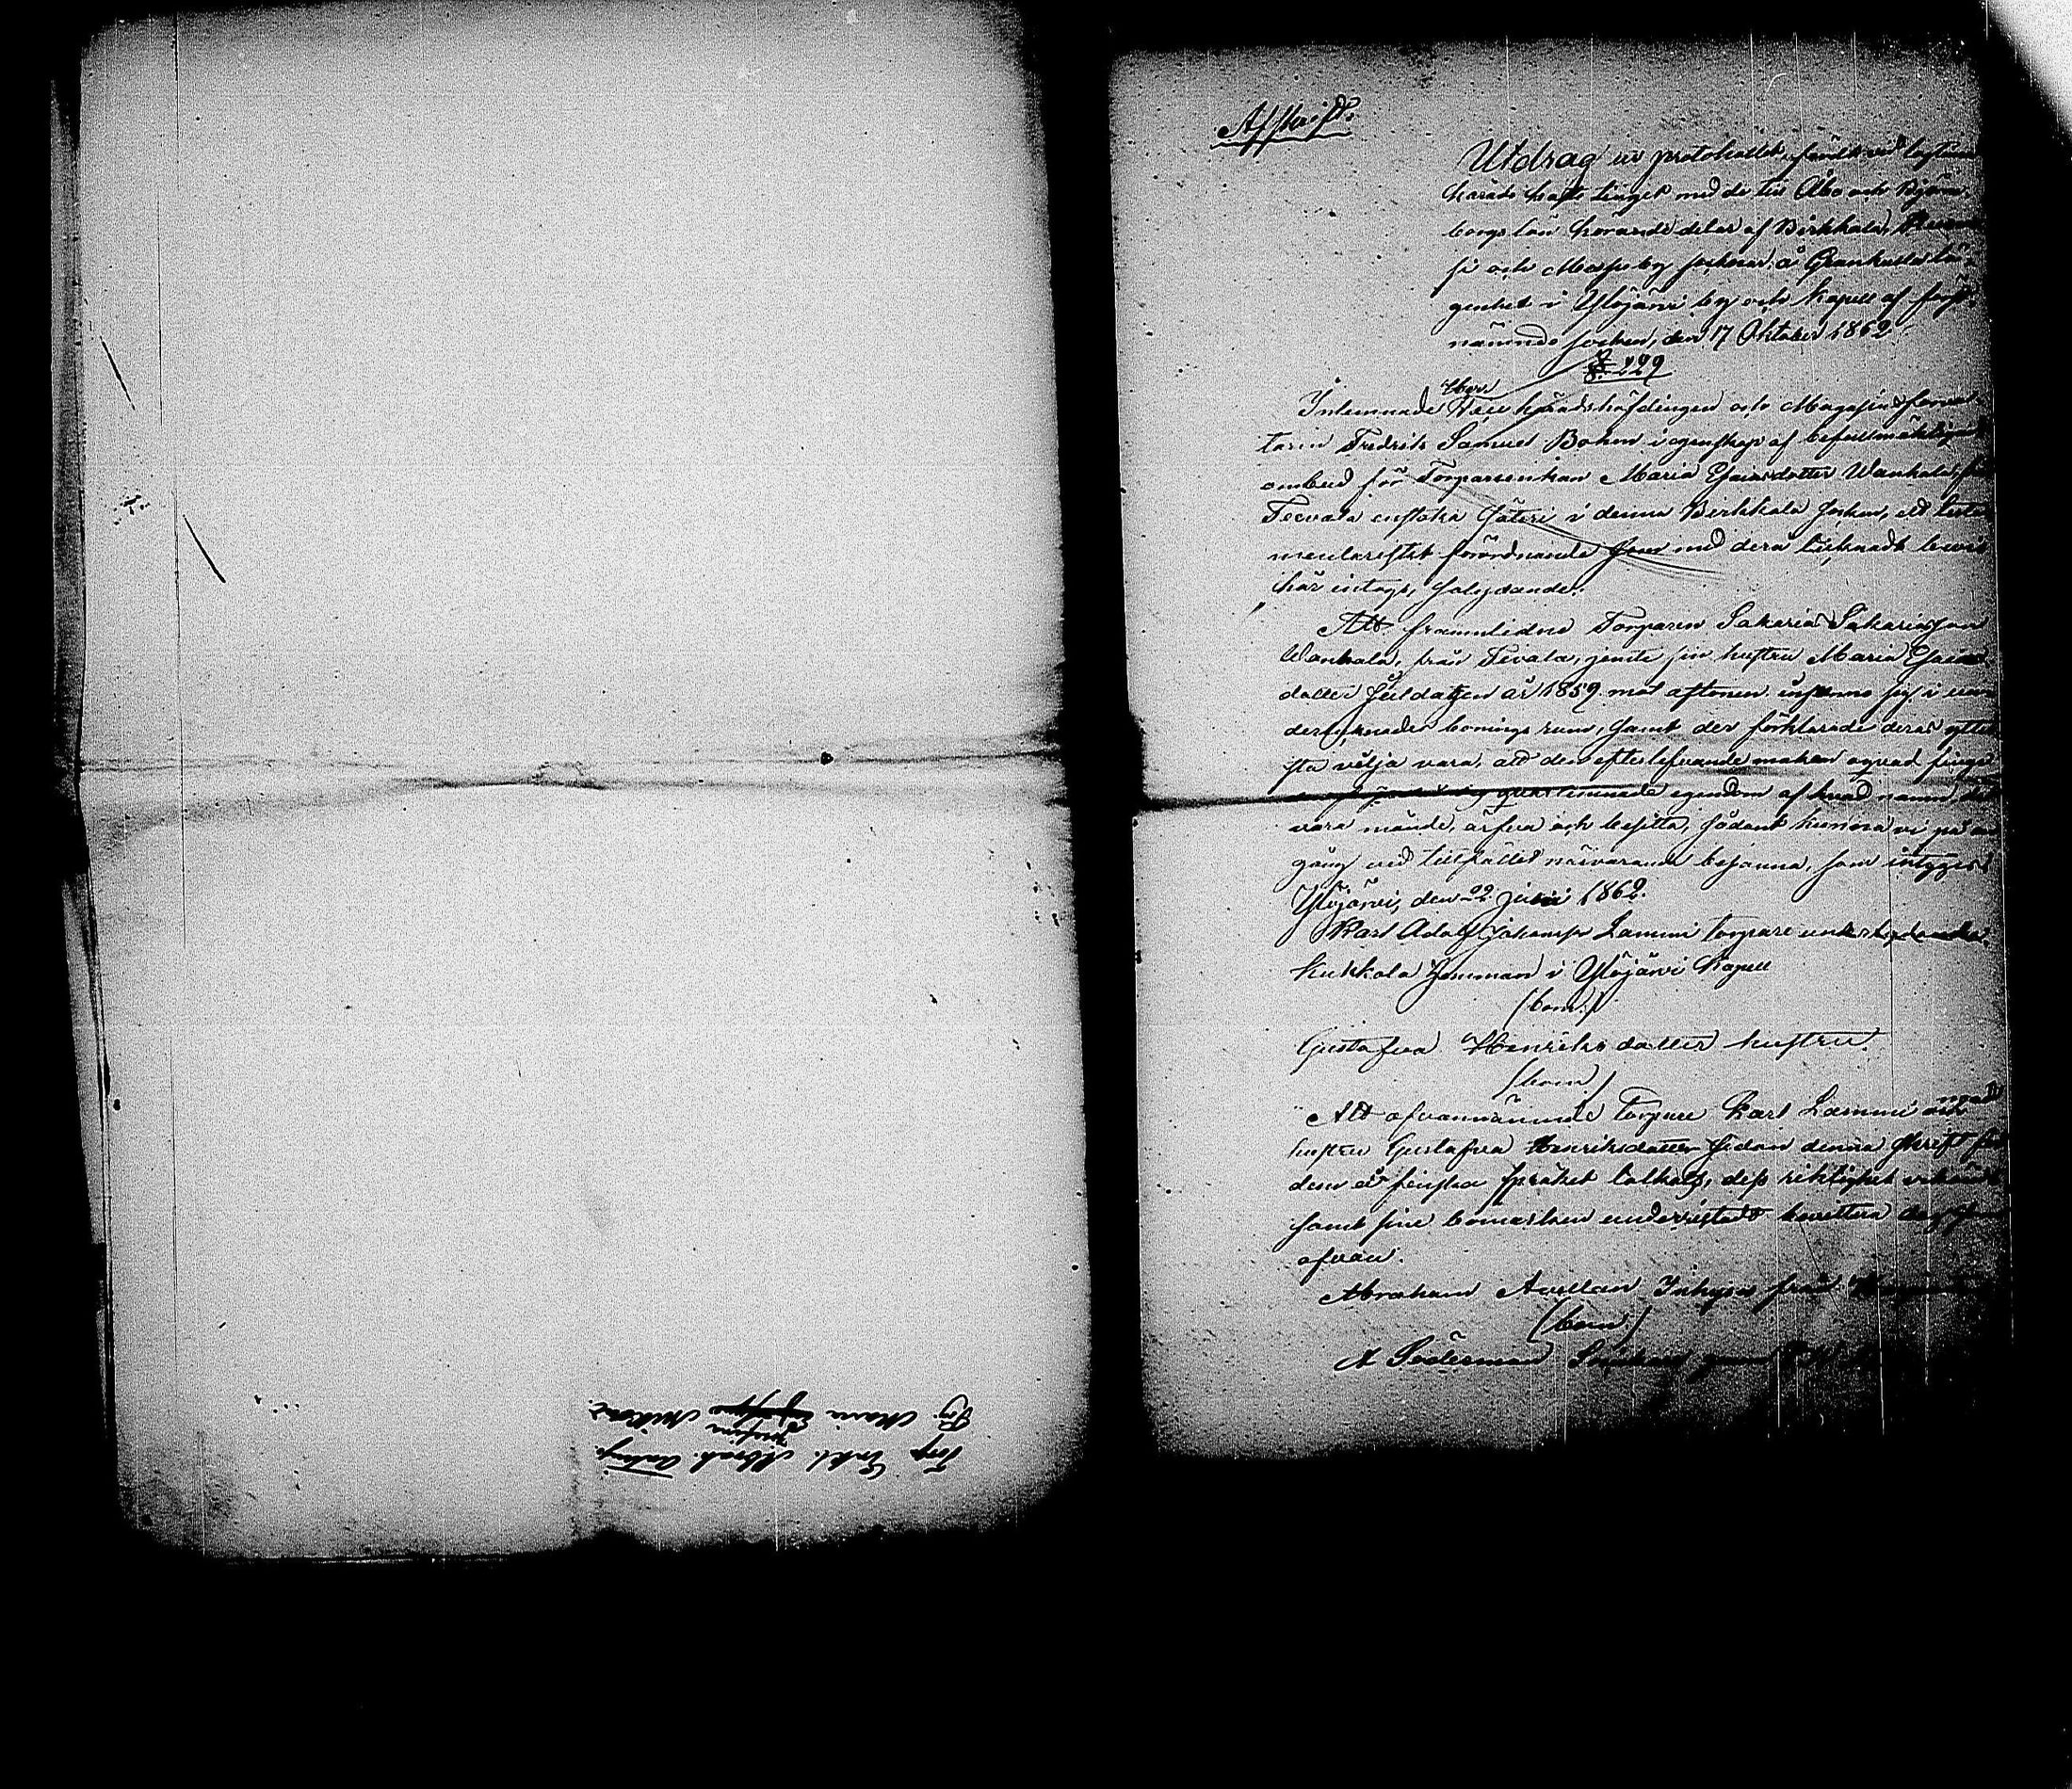 Afskrift.
Utdrag ur protokollet, fördt vid lagtima
härads hösts tinget med de till Åbo och Björne-
borgs län hörande delar af Birkkala,
och Messuby socknar, å Grankulla lä-
genhet i Ylöjärvi by och Kapell af först
nämnde socken, den 17 Oktober 1862.
§ 229
Inlemnade Herr
Vice häradshöfdingen och Magasinsförval-
taren Fredrik Samuel Bohm i egenskap af befullmäktigad
ombud för Torpareenkan Maria Esaiasdotter Wanhala från
Teevala enstaka Säteri i denna Birkkala socken, ett testa-
mentariskt förordnande som med derå tecknadt bevis
här intogs, så lydande:
Att framlidne Torparen Sakarias Sakariasson
Wanhala, från Tevala, jemte sin hustru Maria Esaias
dotter Juldagen år 1859 mot aftonen infunno sig i un-
dertecknades boningsrum, samt der förklarade deras ytter-
sta vilja vara, att den efterlefvande maken ograd finge
qvarlemnade egendom af hvad namn det
vara månde, ärfva och besitta, sådant kunna vi på an-
gång ved tillfället närvarande besanna, som intygas
Ylöjärvi, den 22 juni 1862.
Karl Adolf Johansson Lammi torpare underlydande
Kukkola hemman i Ylöjärvi Kapell
(bom.)
Gustafva Henriksdotter hustru.
(bom.)
Att ofvannämnde torpare Karl Lammi med
hustru Gustafva Henriksdotter sedan denna skrift för
dem å finska språket tolkats, dess riktighet erkändt
samt sine bomärken underristadt bevittna dag som
ofvan.
Abraham Avellan Inhyses från
(bom.)
A Söderman
Torp. Enkl. Abrah. Anders
Josefina
Pig. Maria